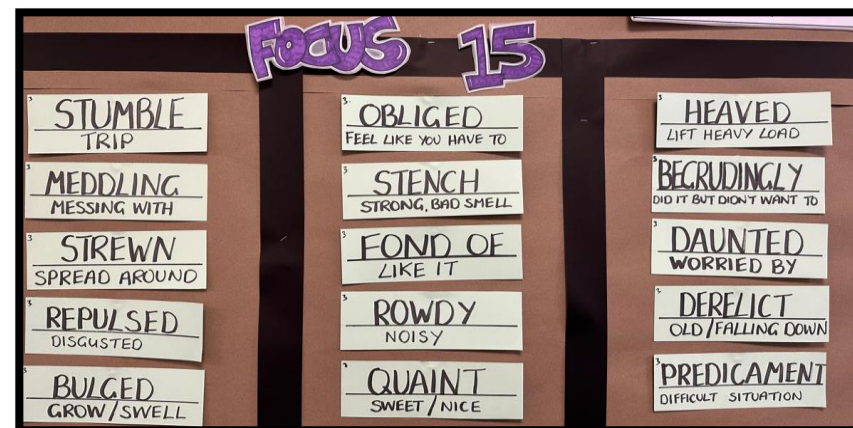 FOCUS 15
STUMBLE
TRIP
MEDDLING
MESSING WITH
STREWN
SPREAD AROUND
REPULSED
DISGUSTED
BULGED
GROW/SWELL
OBLIGED
FEEL LIKE YOU HAVE TO
STENCH
STRONG, BAD SMELL
FOND OF
LIKE IT
ROWDY
NOISY
QUAINT
SWEET/NICE
HEAVED
LIFT HEAVY LOAD
BEGRUDINGLY
DID IT BUT DIDN'T WANT TO
DAUNTED
WORRIED BY
DERELICT
OLD/FALLING DOWN
PREDICAMENT
DIFFICULT SITUATION